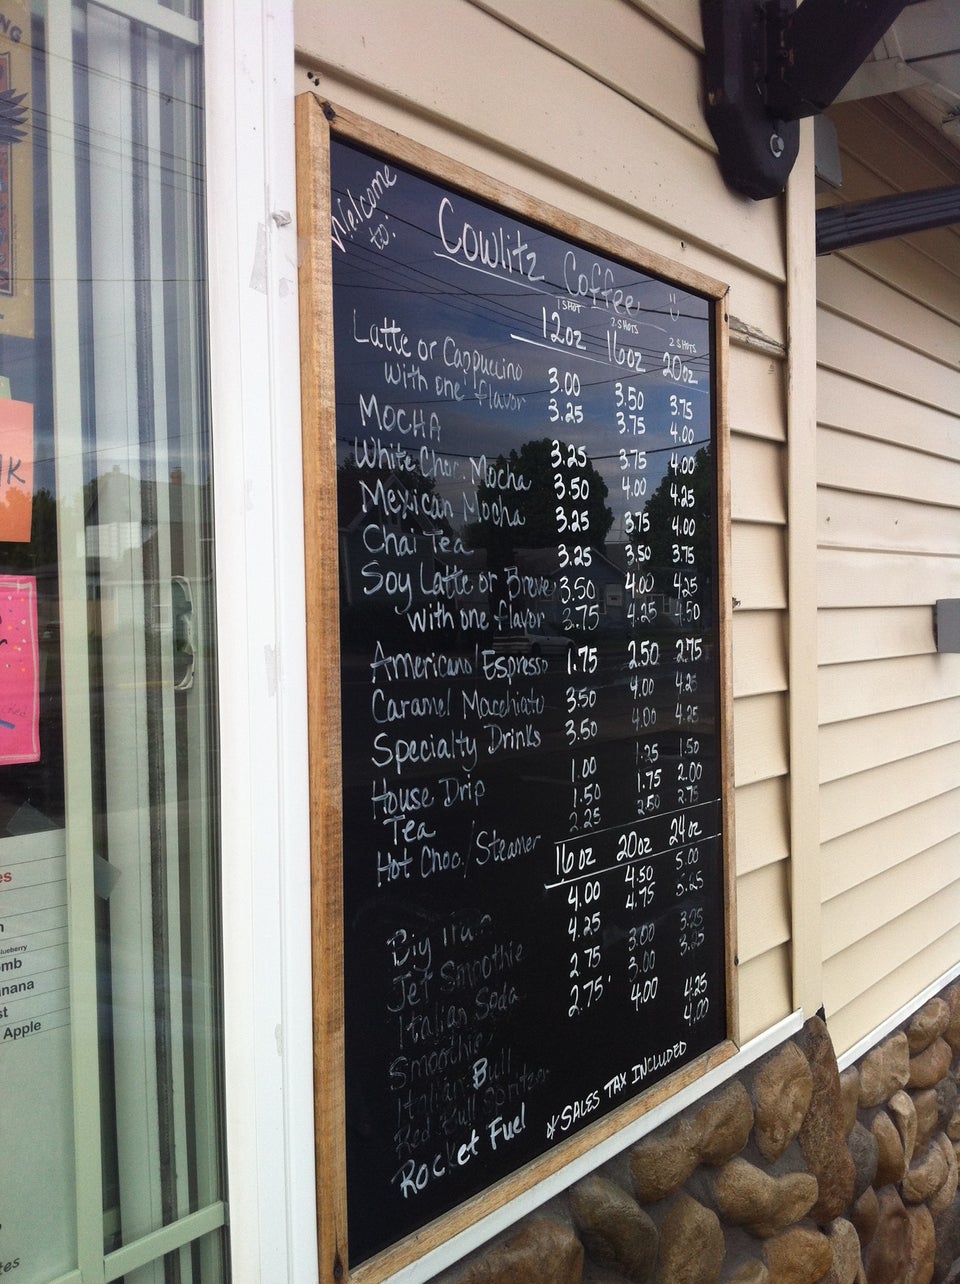 Welcome
to:
Cowlitz Coffee
1 SHOT 2 SHOTS 2 SHOTS
12oz 16oz 20oz
Latte or Cappuccino 3.00 3.50 3.75
with one flavor 3.25 3.75 4.00
MOCHA 3.25 3.75 4.00
White Choc. Mocha 3.50 4.00 4.25
Mexican Mocha 3.25 3.75 4.00
Chai Tea 3.25 3.50 3.75
Soy Latte or Breve 3.50 4.00 4.25
with one flavor 3.75 4.25 4.50
Americano/Espresso 1.75 2.50 2.75
Caramel Macchiato 3.50 4.00 4.25
Specialty Drinks 3.50 4.00 4.25
House Drip 1.00 1.25 1.50
Tea 1.50 1.75 2.00
Hot Choc./Steamer 2.25 2.50 2.75
16oz 20oz 24oz
Big Train 4.00 4.50 5.00
Jet Smoothie 4.25 4.75 5.25
Italian Soda 2.75 3.00 3.25
Smoothie 2.75 3.00 3.25
Italian Bull 4.00 4.25
Red Bull Spritzer 4.00
Rocket Fuel
* SALES TAX INCLUDED
Blueberry
Apple